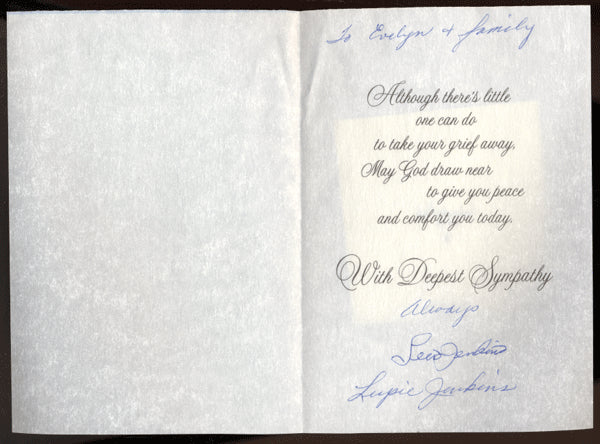 To Evelyn & family
Although there's little
one can do
to take your grief away,
May God draw near
to give you peace
and comfort you today.
With Deepest Sympathy
Always
Jenkins
Lupie Jenkins